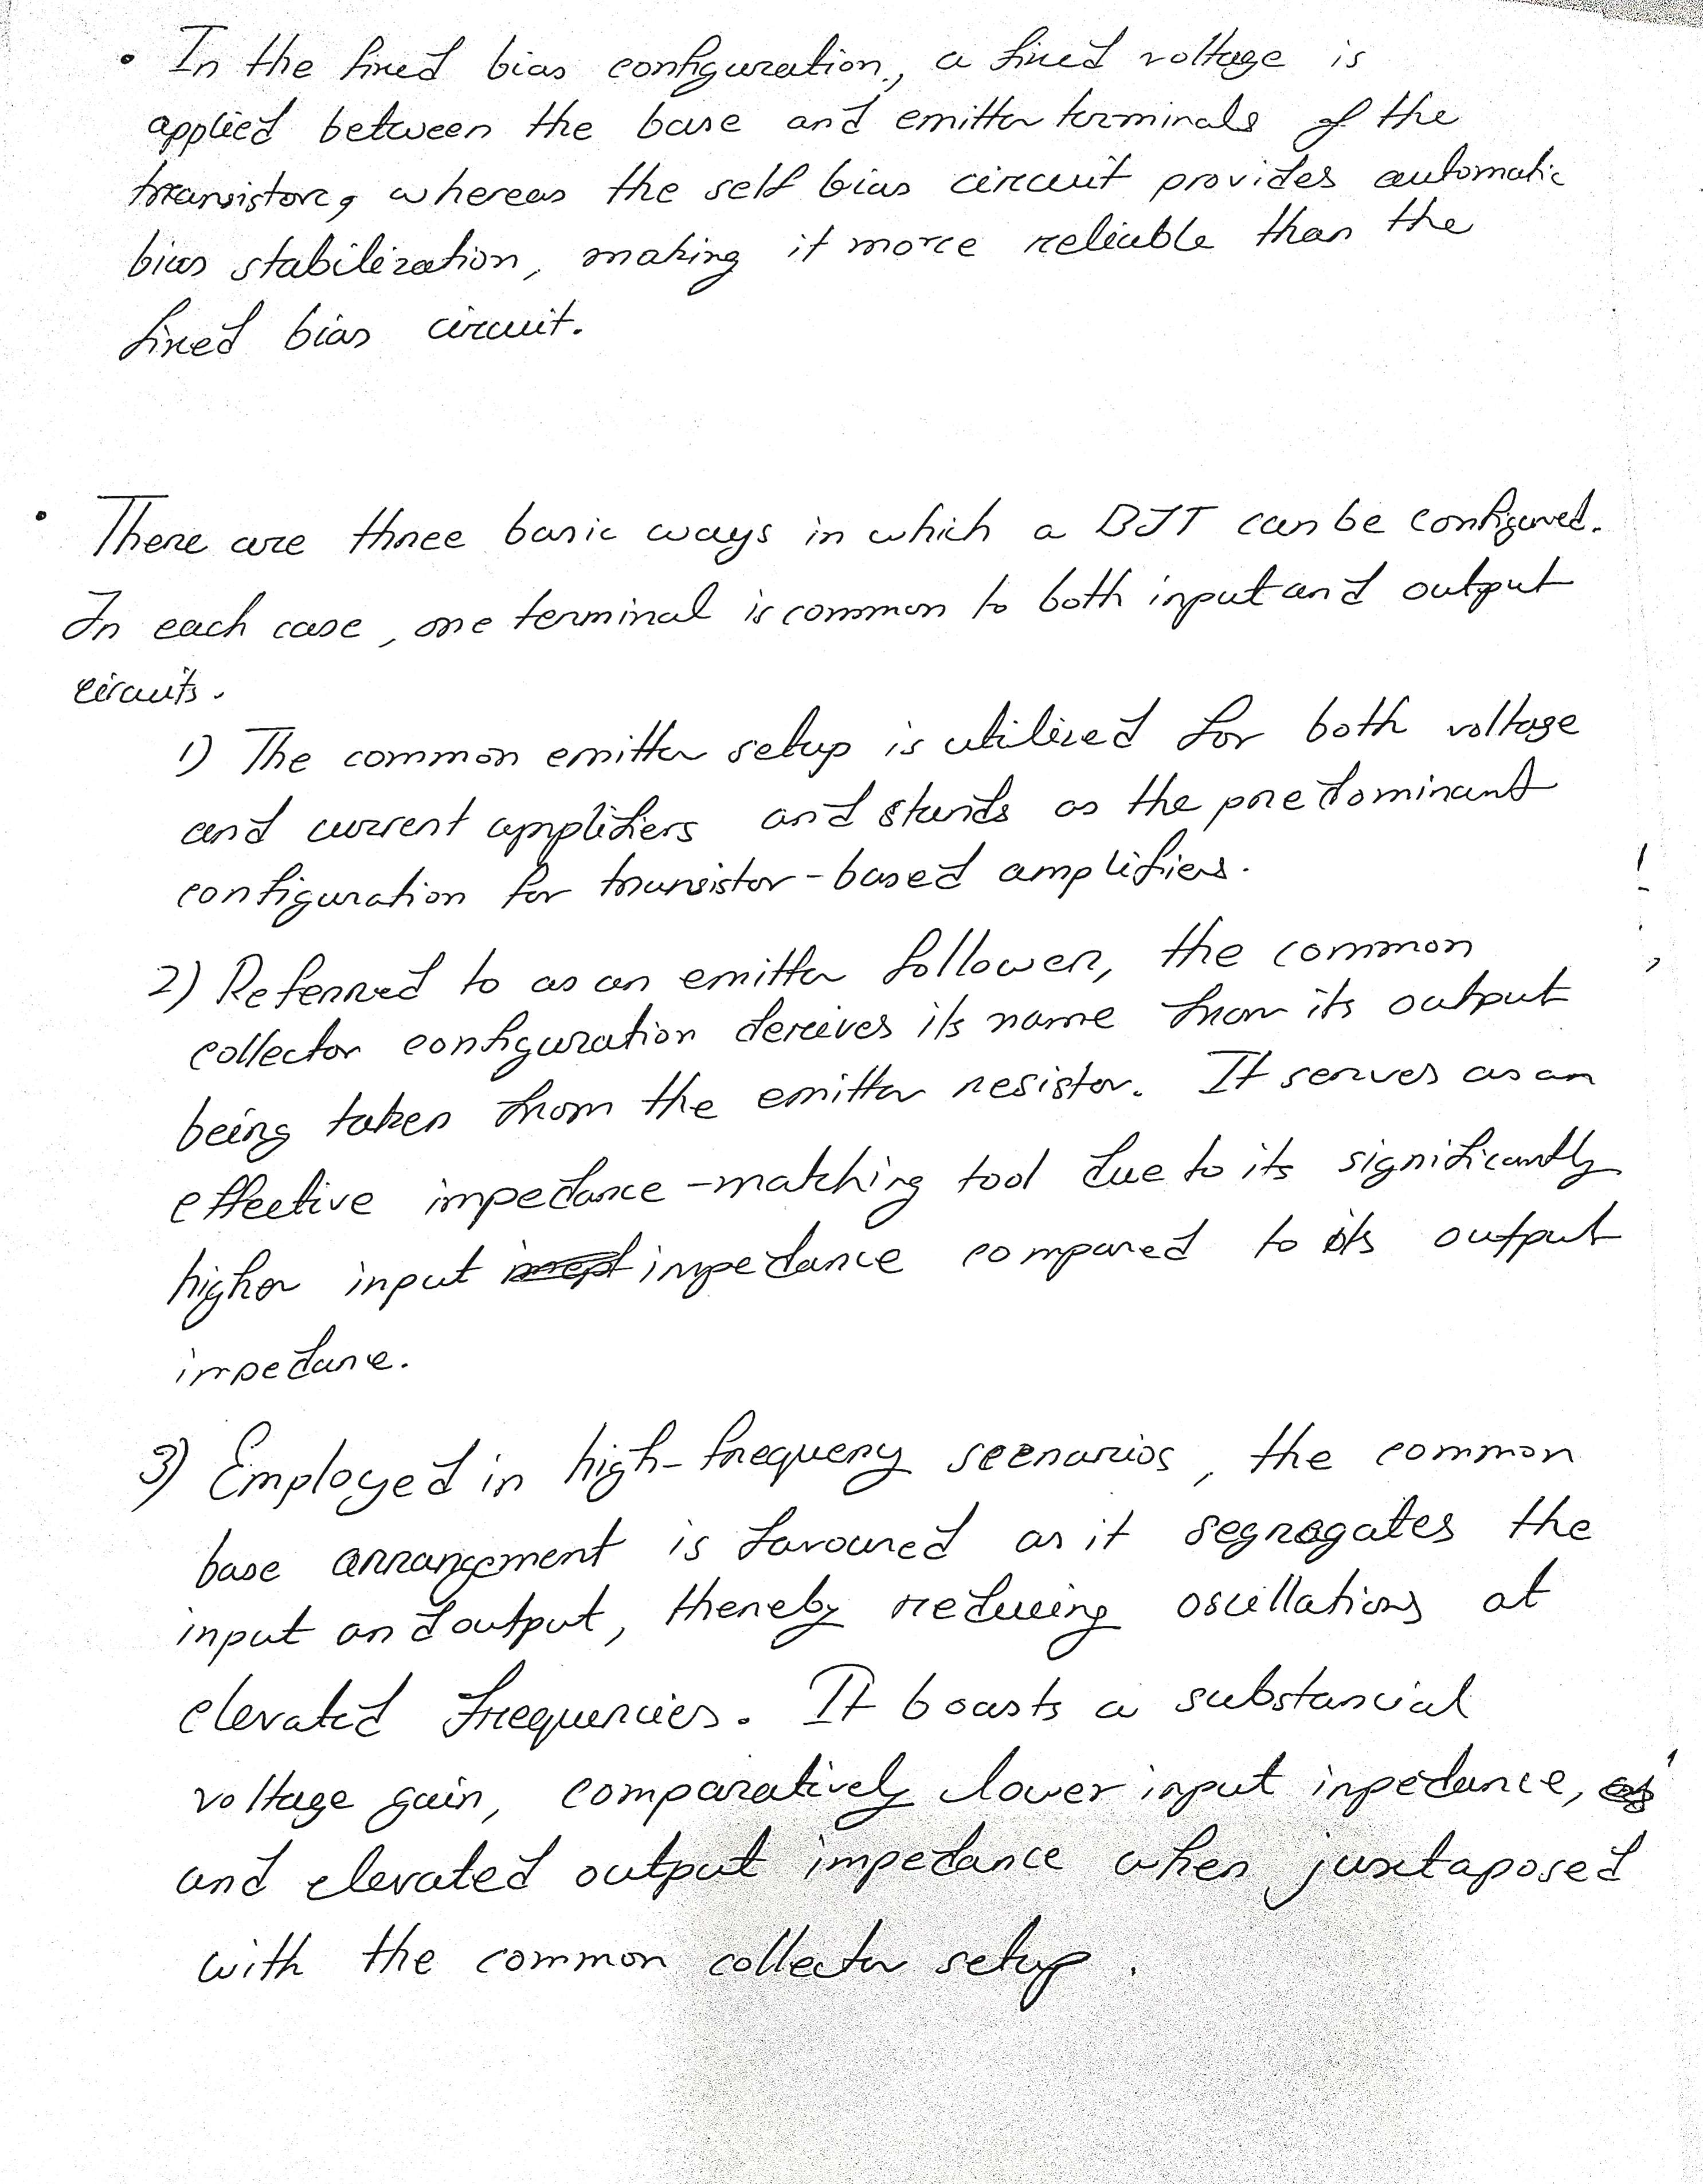 • In the fixed bias configuration, a fixed voltage is
applied between the base and emitter terminals of the
transistor, whereas the self bias circuit provides automatic
bias stabilization, making it more reliable than the
fixed bias circuit.
• There are three basic ways in which a BJT can be configured.
In each case, one terminal is common to both input and output
circuits.
1) The common emitter setup is utilized for both voltage
and current amplifiers and stands as the predominant
configuration for transistor-based amplifiers.
2) Referred to as an emitter follower, the common
collector configuration derives its name from its output
being taken from the emitter resistor. It serves as an
effective impedance-matching tool due to its significantly
higher input impedance compared to its output
impedance.
3) Employed in high-frequency scenarios, the common
base arrangement is favoured as it segragates the
input and output, thereby reducing oscillations at
elevated frequencies. It boasts a substancial
voltage gain, comparatively lower input inpedance,
and elevated output impedance when juxtaposed
with the common collector setup.